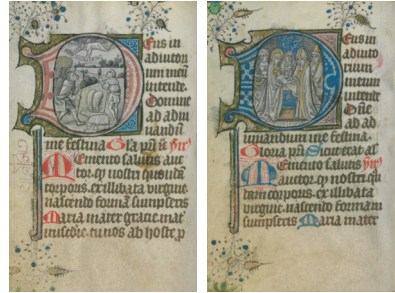 Eus in
adiutori
um meū
intende.
Domine
ad adiu
uandū
me festina. Gla pri
Memento salutis auc
tor. q nostri quōdā
corporis. ex illibata virgine
nascendo formā sumpseris
Maria mater gracie. mat
misedie. tu nos ab hoste p
Eus in
adiuto
rium
meum
intende
Dne
ad ad
iuuandum me festina.
Gloria pri Sicut erat
Memento salutis
auctor. q nostri quō
dam corporis. ex illibata
virgine. nascendo formam
sumpseris Maria mater